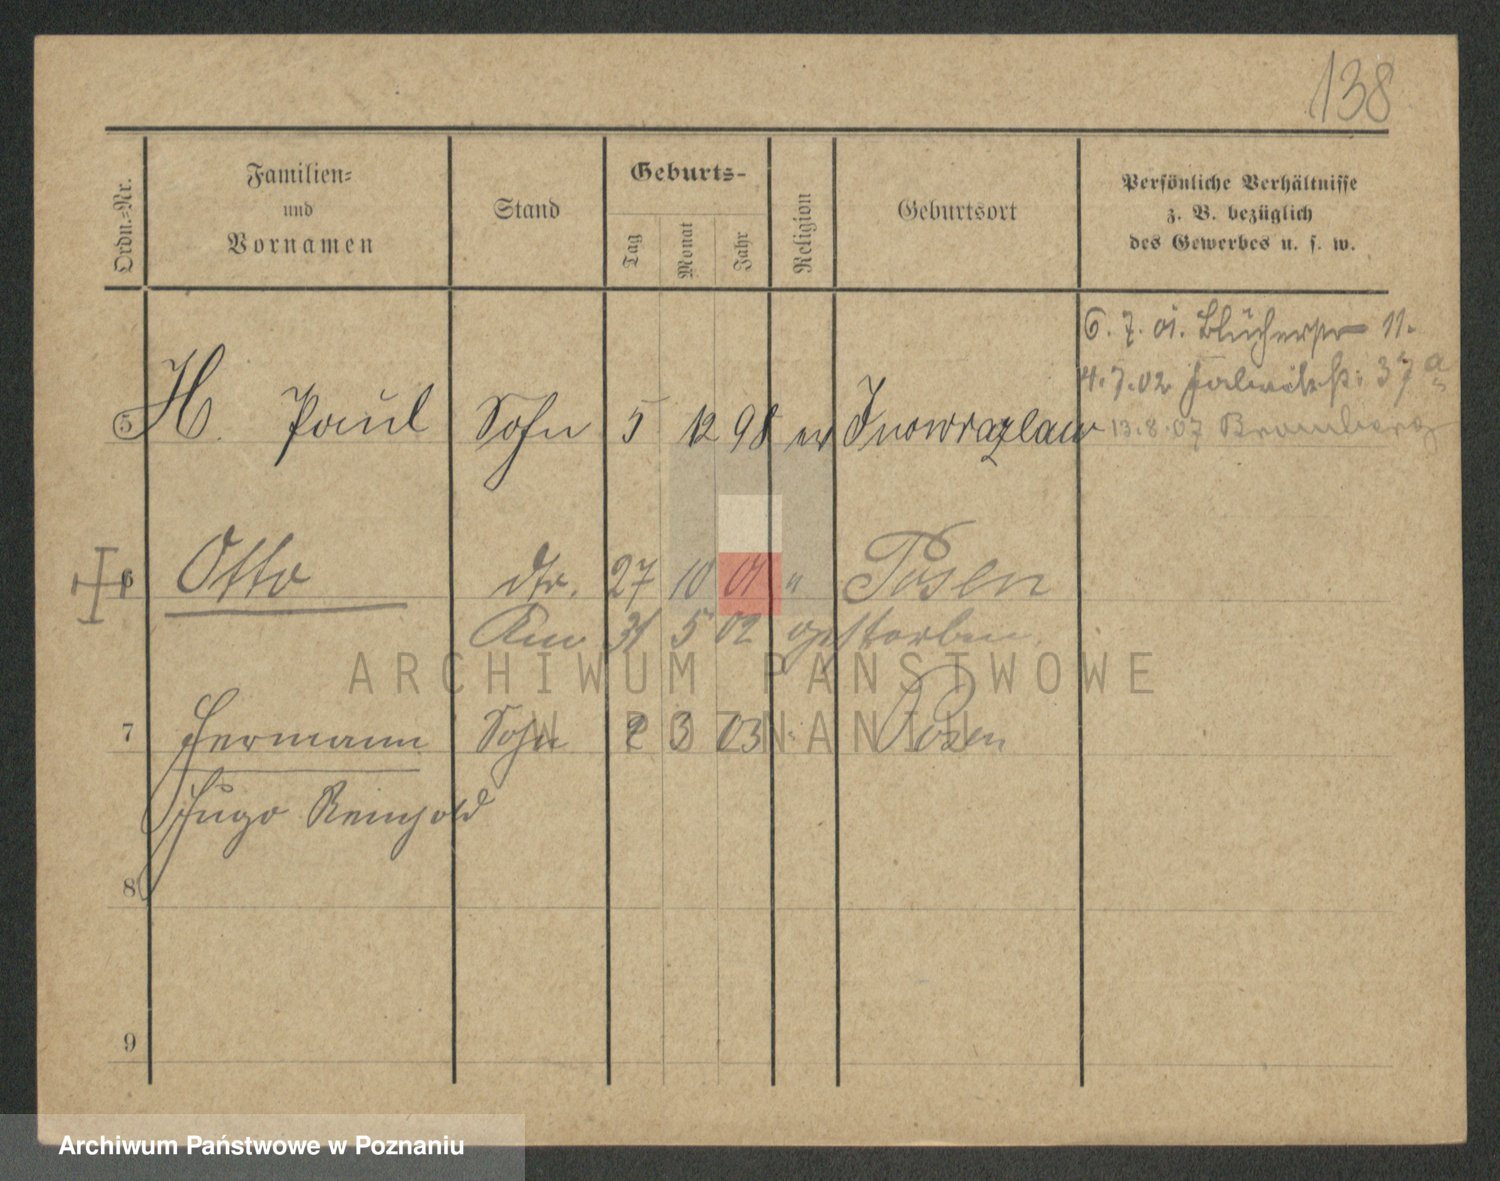 138
Ordn.-Nr.
Familien-
und
Vornamen
Stand
Geburts-
Tag
Monat
Jahr
Religion
Geburtsort
Persönliche Verhältnisse
z. B. bezüglich
des Gewerbes u. s. w.
6. 7. 01. Blücherstr 11.
4. 7. 02 37a
13. 8. 07 Bromberg
5 H. Paul Sohn 5 12 98 ev Inowrazlaw
6 Otto 27 10 01 " Posen
Am 31 5 02 gestorben
7 Hermann Sohn 2 3 03 " Posen
Hugo Reinhold
8
9
ARCHIWUM PAŃSTWOWE
W POZNANIU
Archiwum Państwowe w Poznaniu